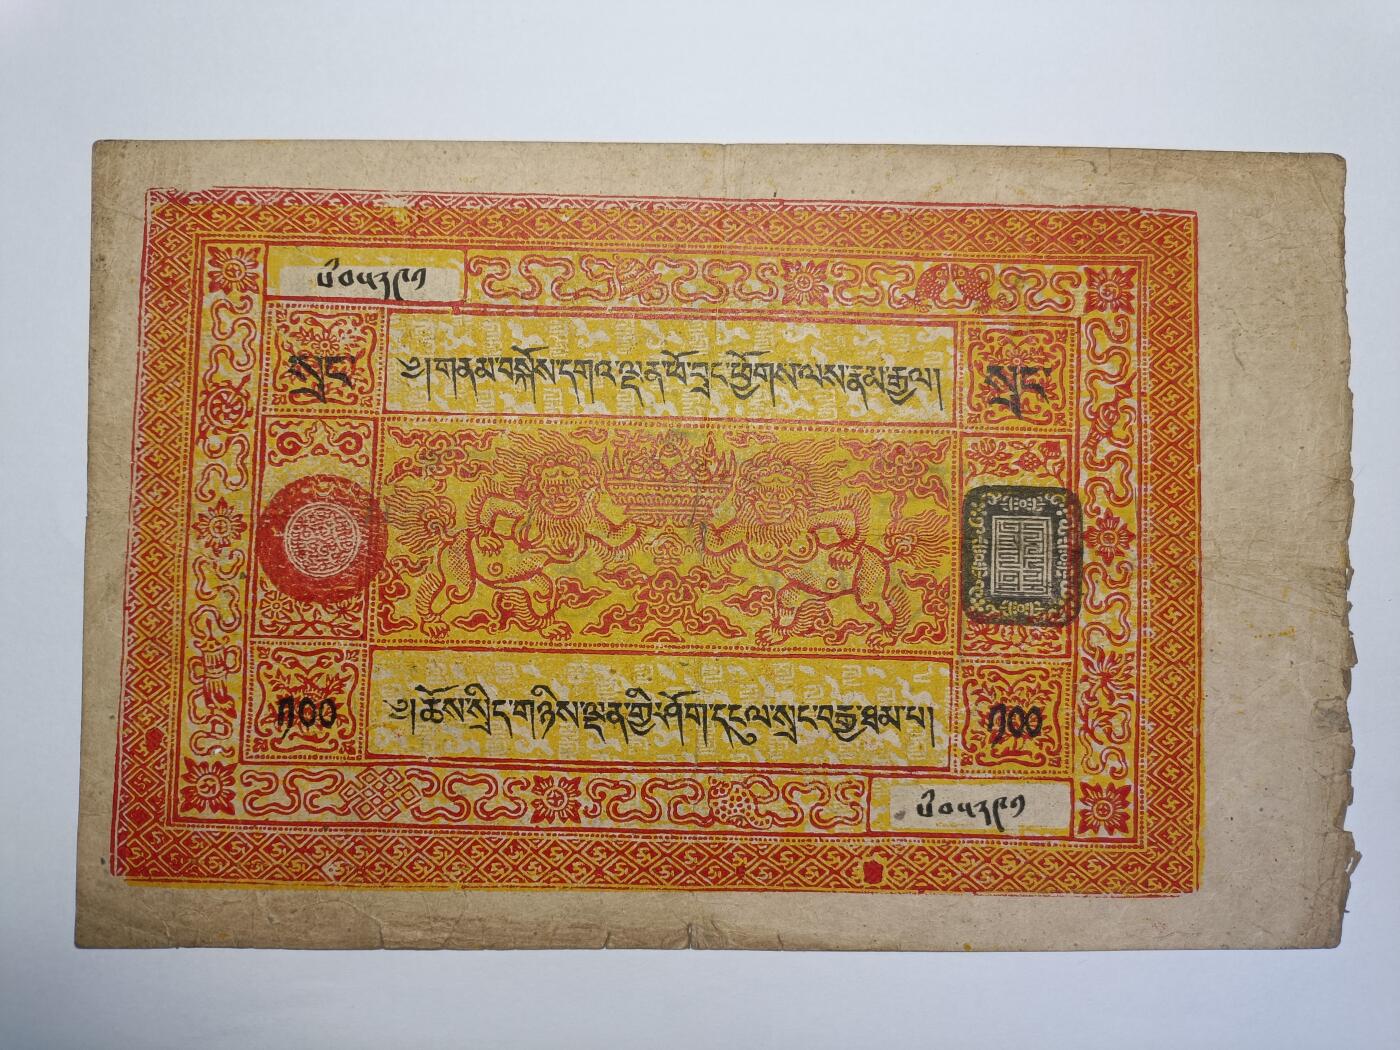 ༠༥༣༩༡
༄། གནམ་བསྐོས་དགའ་ལྡན་ཕོ་བྲང་ཕྱོགས་ལས་རྣམ་རྒྱལ།
སྲང་ སྲང་
༡༠༠ ༡༠༠
༄། ཆོས་སྲིད་གཉིས་ལྡན་གྱི་ཤོག་དངུལ་སྲང་བརྒྱ་ཐམ་པ།
༠༥༣༩༡